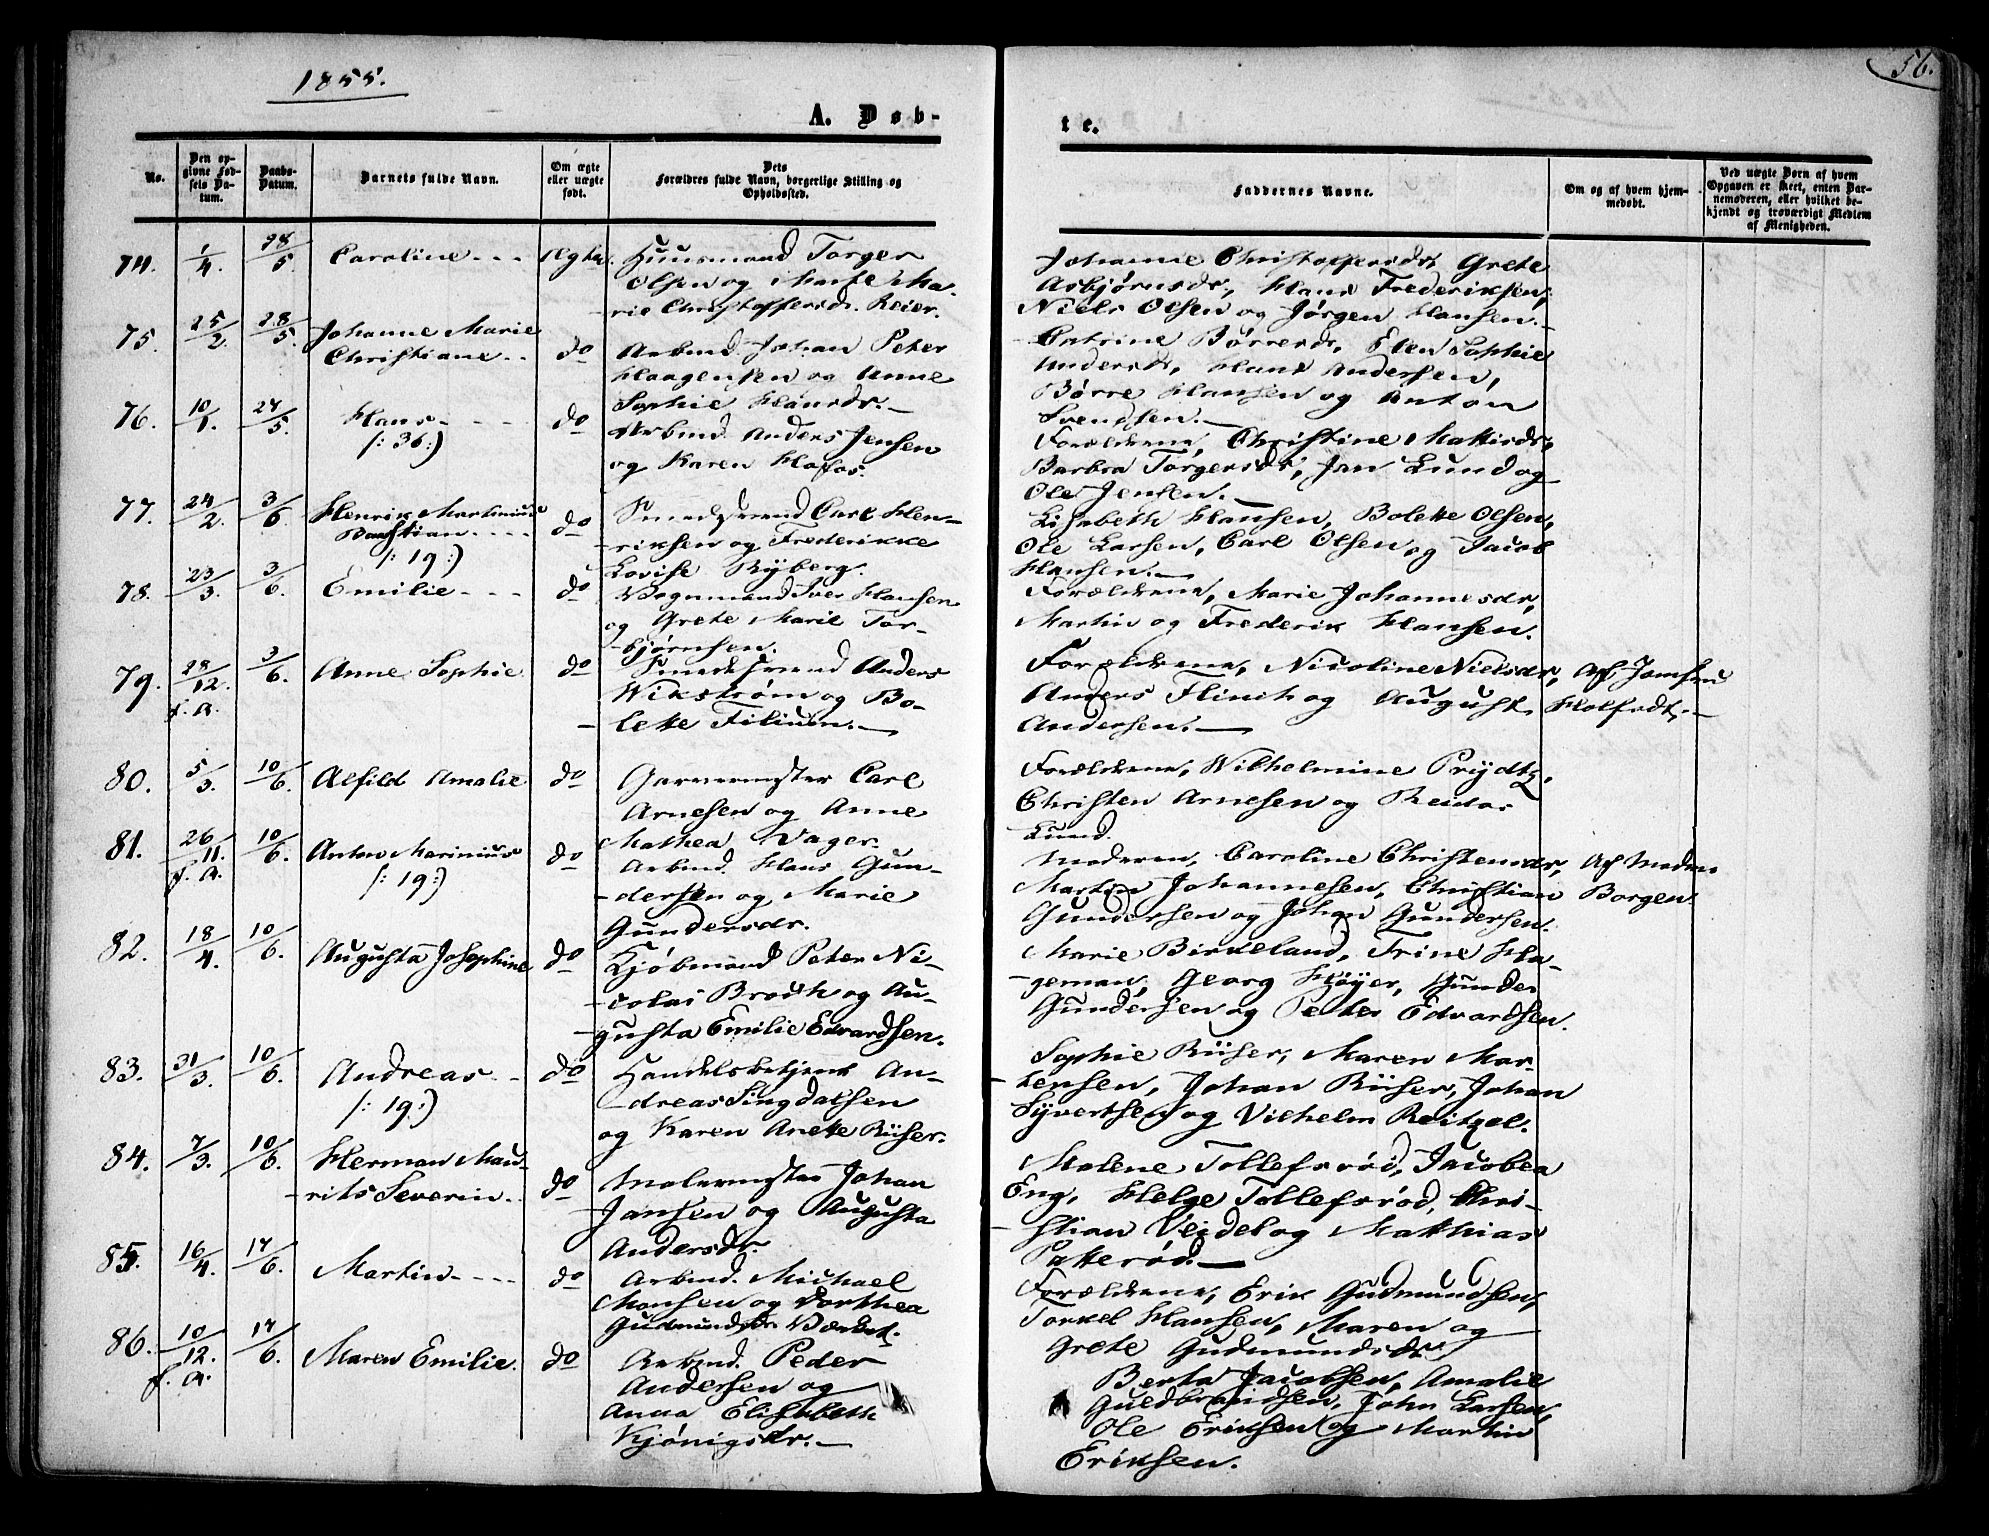 1855.
56.
A. Døb-
te.
No.
Den op-
givne Fød-
sels Da-
tum.
Daabs-
Datum.
Barnets fulde Navn.
Om ægte
eller uægte
født.
Dets
Forældres fulde Navn, borgerlige Stilling og
Opholdssted.
Faddernes Navne.
Om og af hvem hjem-
medøbt.
Ved uægte Børn af hvem
Opgaven er skeet, enten Bar-
nemoderen, eller hvilket be-
kjendt og troværdigt Medlem
af Menigheden.
74. 1/4. 28/5 Caroline Ægte. Huusmand Torger
Olsen og Marte Ma-
rie Christoffersdr. Reier.
Johanne Christoffersdr, Grete
Asbjørnsdr., Hans Frederiksen,
Niels Olsen og Jørgen Hansen.
75. 25/2. 28/5. Johanne Marie
Christiane do Arbmd. Johan Peter
Haagensen og Anne
Sophie Hansdr.
Catrine Børresdr, Elen Sophie
Andersdr, Hans Andersen,
Børre Hansen og Anton
Svendsen.
76. 10/1. 27/5. Hans
/: 36:) do Arbmd. Anders Jensen
og Karen Hofos.
Forældrene, Christine Mattisdr,
Barbra Torgersdr, Jan Lund og
Ole Jensen.
77. 24/2. 3/6 Henrik Martinius
Bastian
/: 19:) do Smedsvend Carl Hen-
riksen og Frederikke
Lovise Ryberg.
Lisabeth Hansen, Bolette Olsen,
Ole Larsen, Carl Olsen og Jacob
Hansen.
78. 23/3. 3/6. Emilie do Vognmand Iver Hansen
og Grete Marie Tor-
bjørnsen.
Forældrene, Marie Johannesdr,
Martin og Frederik Hansen.
79. 28/12. f. A. 3/6. Anne Sophie do Smedesvend Anders
Wikstrøm og Bo-
lette Filiusen.
Forældrene, Nicoline Nielsdr,
Anders Flinth og August
Andersen.
Af Jomfru
Holfodt.
80. 5/3. 10/6. Alfild Amalie do Garvermester Carl
Arnesen og Anne
Mathea Vager.
Forældrene, Wilhelmine Prydtz,
Christen Arnesen og Reidar
Lund.
81. 26/11. f. A. 10/6. Anton Marinius
/: 19:) do Arbmd. Hans Gun-
dersen og Marie
Gundersdr.
Moderen, Caroline Christensdr,
Martin Johannesen, Christian
Gundersen og Johan Gundersen.
Af Madm
Borgen
82. 18/4. 10/6. Augusta Josephine do Kjøbmand Peter Ni-
colai Broch og Au-
gusta Emilie Edvardsen.
Marie Birkeland, Trine Ha-
geman, Georg Høyer, Gunder
Gundersen og Petter Edvardsen.
83. 31/3. 10/6. Andreas
/: 19:) do Handelsbetjent An-
dreas Singdalsen
og Karen Anette Riiser.
Sophie Riiser, Maren Mor-
tensen, Johan Riiser, Johan
Syvertsen og Vilhelm Reitzel.
84. 7/3. 10/6. Herman Mau-
rits Severin do Malermester Johan
Jansen og Augusta
Andersdr.
Malene Tollefsrød, Jacobea
Eng, Helge Tollefsrød, Chri-
stian Veidel og Mathias
Patterød.
85. 16/4. 17/6. Martin do Arbmd. Michael
Monsen og Dorthea
Gudmundsdr. Værket.
Forældrene, Erik Gudmundsen,
Torkel Hansen, Maren og
Grete Gudmundsdr
86. 10/12. f. A. 17/6. Maren Emilie. do Arbmd. Peder
Andersen og
Anna Elisabeth
Kjønigsdr.
Berta Jacobsen, Amalie
Guldbrandsen, John Larsen,
Ole Eriksen og Martin
Eriksen.